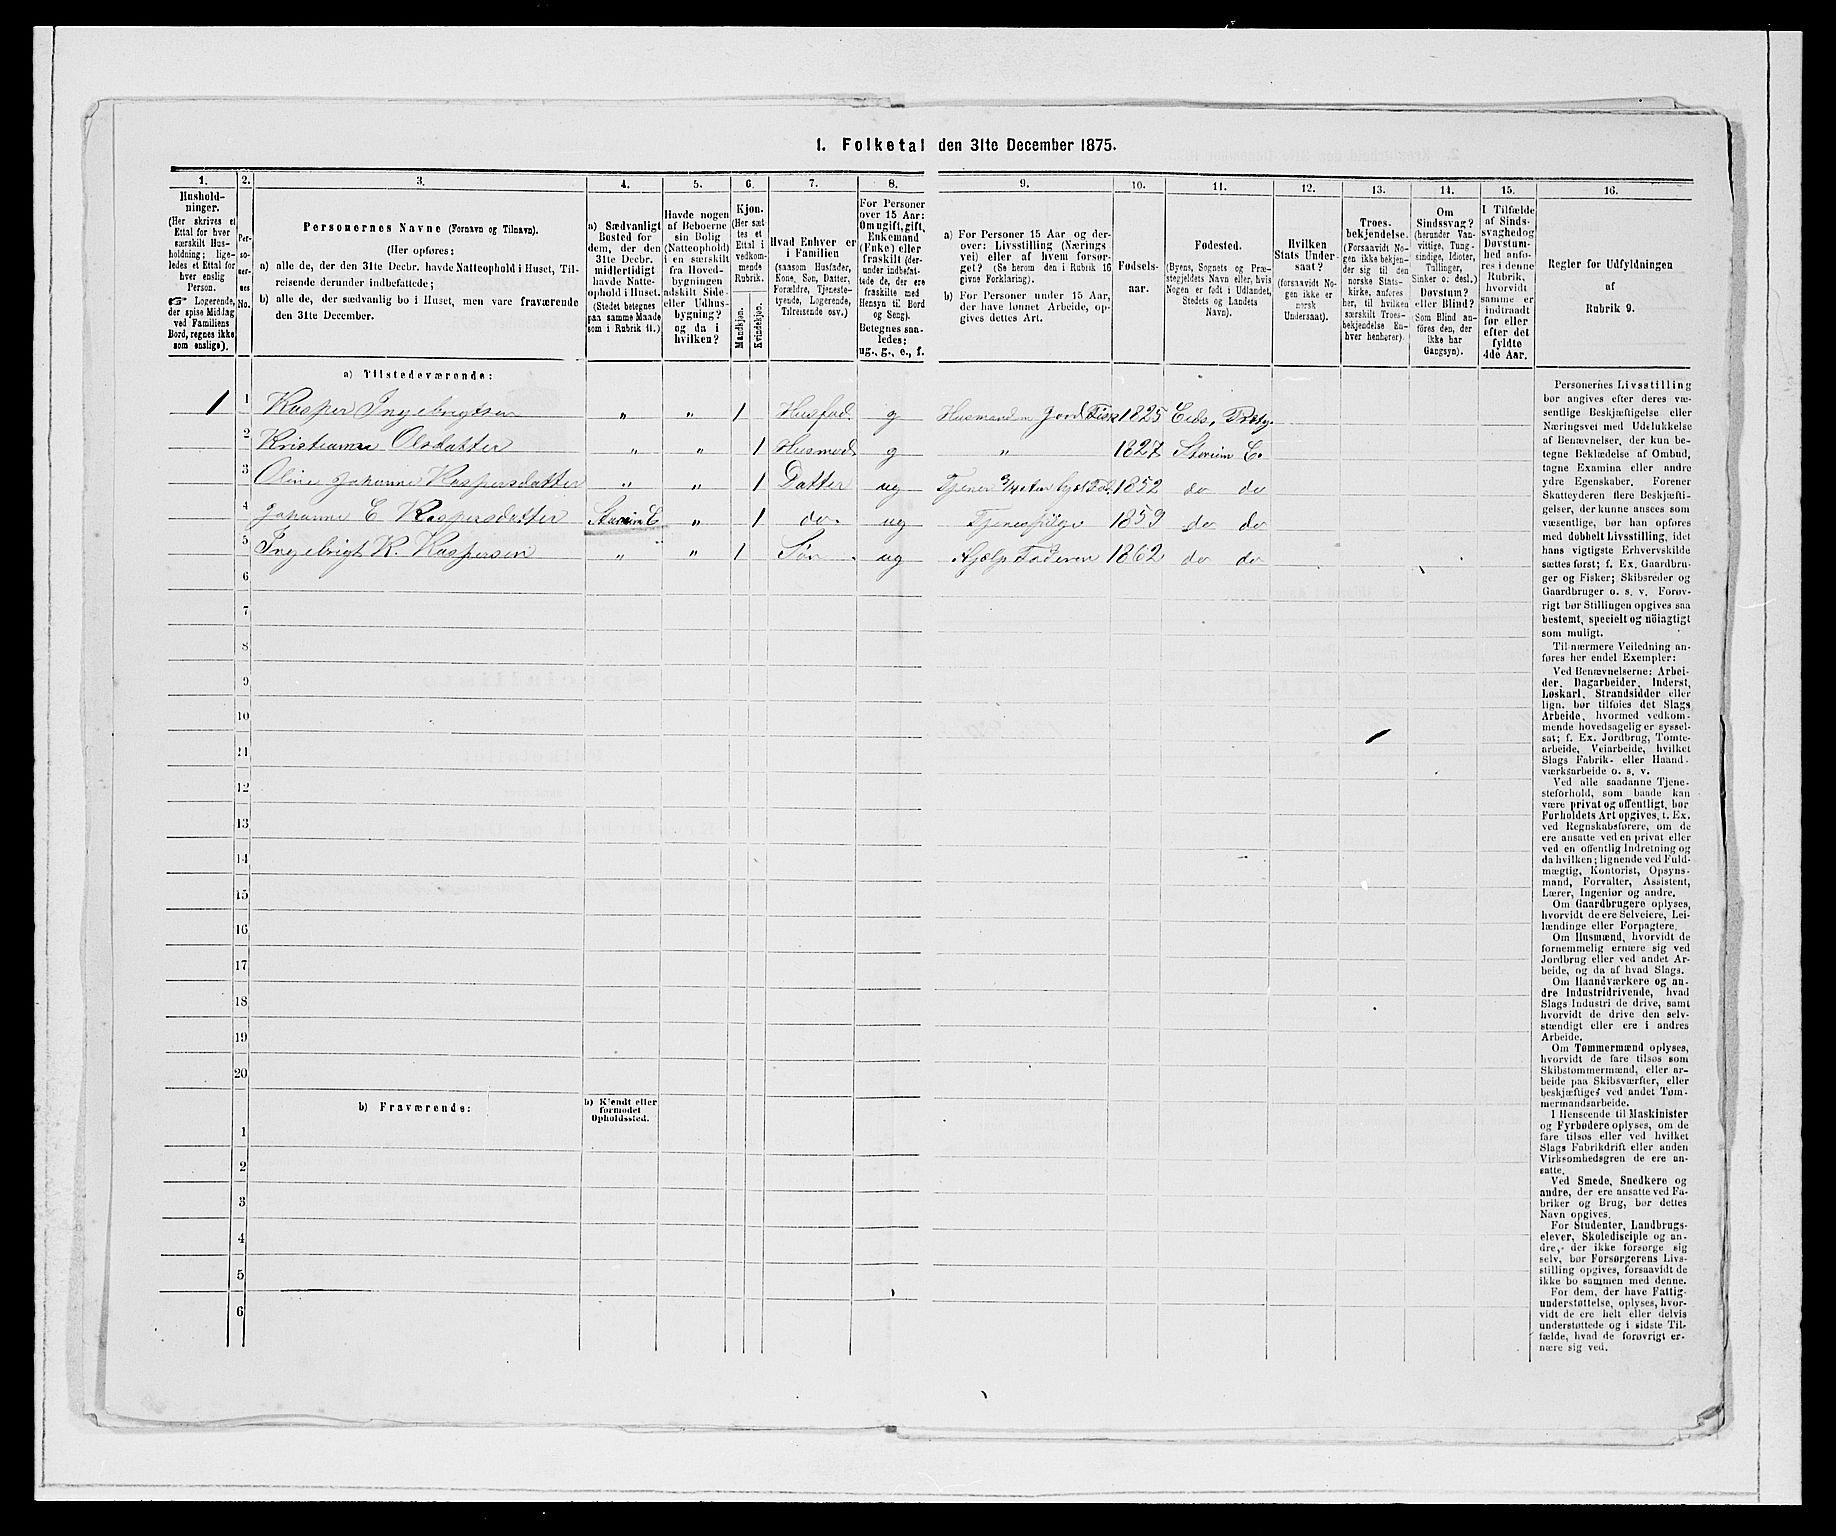 1. Folketal den 31te December 1875.
1. 2. 3. 4. 5. 6. 7. 8. 9. 10. 11. 12. 13. 14. 15. 16.
Hushold-
ninger.
(Her skrives et
Ettal for hver
særskilt Hus-
holdning; lige-
ledes et Ettal for
hver enslig
Person.
☞ Logerende,
der spise Middag
ved Familiens
Bord, regnes ikke
som enslige).
Per-
so-
ner-
nes
No.
Personernes Navne (Fornavn og Tilnavn).
(Her opføres:
a) alle de, der den 31te Decbr. havde Natteophold i Huset, Til-
reisende derunder indbefattede;
b) alle de, der sædvanlig bo i Huset, men vare fraværende
den 31te December.
a) Sædvanligt
Bosted for
dem, der den
31te Decbr.
midlertidigt
havde Natte-
ophold i Huset.
(Stedet betegnes
paa samme Maade
som i Rubrik 11.)
Havde nogen
af Beboerne
sin Bolig
(Natteophold)
i en særskilt
fra Hoved-
bygningen
adskilt Side-
eller Udhus-
bygning?
og da i
hvilken?
Kjøn.
(Her sæt-
tes et
Ettal i
vedkom-
mende
Rubrik.
Mandskjøn.
Kvindekjøn.
Hvad Enhver er
i Familien
(saasom Husfader,
Kone, Søn, Datter,
Forældre, Tjeneste-
tyende, Logerende,
Tilreisende osv.)
For Personer
over 15 Aar:
Om ugift, gift,
Enkemand
(Enke) eller
fraskilt (der-
under indbefat-
tede de, der ere
fraskilte med
Hensyn til Bord
og Seng).
Betegnes saa-
ledes:
ug., g., e., f.
a) For Personer 15 Aar og der-
over: Livsstilling (Nærings
vei) eller af hvem forsør-
get? (Se herom den i Rubrik 16
givne Forklaring).
b) For Personer under 15 Aar,
der have lønnet Arbeide, op-
gives dettes Art.
Fødsels-
aar.
Fødested.
(Byens, Sognets og Præ-
stegjeldets Navn eller, hvis
Nogen er født i Udlandet,
Stedets og Landets
Navn).
Hvilken
Stats Under-
saat?
(forsaavidt No-
gen ikke er
norsk
Undersaat).
Troes-
bekjendelse.
(Forsaavidt No-
gen ikke bekjen-
der sig til den
norske Stats-
kirke, anføres
her, til hvilken
særskilt Troes-
bekjendelse En-
hver henhører).
Om
Sindssvag?
(herunder Van-
vittige, Tung-
sindige, Idioter,
Tullinger,
Sinker o. desl.)
Døvstum?
eller Blind?
(Som Blind an-
føres den, der
ikke har
Gangsyn).
I Tilfælde
af Sinds-
svaghed og
Døvstum-
hed anfø-
res i denne
Rubrik,
hvorvidt
samme er
indtraadt
før eller
efter det
fyldte
4de Aar.
Regler for Udfyldningen
af
Rubrik 9.
a) Tilstedeværende:
1 1 Kasper Ingebrigtsen „ „ 1 Husfad. g Husmand m Jord Fisk 1825 Eids,
2 Kristianna Olsdatter „ „ 1 Husmod. g „ 1827 Stenim E.
3 Oline Johanne Kaspersdatter „ „ 1 Datter ug Tjener 1852 do do
4 Johanne E Kaspersdatter „ 1 do. ug Tjenestpige 1859 do do
5 Ingebrigt K. Kaspersen „ „ 1 Søn. ug Hjælp Faderen 1862 do do
6
7
8
9
10
11
12
13
14
15
16
17
18
19
20
b) Fraværende: b) Kjendt eller
formodet
Opholdssted.
1
2
3
4
5
6
Personernes Livsstilling
bør angives efter deres væ-
sentlige Beskjæftigelse eller
Næringsvei med Udelukkelse
af Benævnelser, der kun be-
tegne Beklædelse af Ombud,
tagne Examina eller andre
ydre Egenskaber. Forener
Skatteyderen flere Beskjæfti-
gelser, der kunne ansees som
væsentlige, bør han opføres
med dobbelt Livsstilling, idet
hans vigtigste Erhvervskilde
sættes først; f. Ex. Gaardbru-
ger og Fisker; Skibsreder og
Gaardbruger o. s. v. Forøv-
rigt bør Stillingen opgives saa
bestemt, specielt og nöiagtigt
som muligt.
Til nærmere Veiledning an-
føres her endel Exempler:
Ved Benævnelserne: Arbei-
der, Dagarbeider, Inderst,
Løskarl, Strandsidder eller
lign. bør tilføies det Slags
Arbeide, hvormed vedkom-
mende hovedsagelig er syssel-
sat; f. Ex. Jordbrug, Tomte-
arbeide, Veiarbeide, hvilket
Slags Fabrik- eller Haand-
værksarbeide o. s. v.
Ved alle saadanne Tjene-
steforhold, som baade kan
være privat og offentligt, bør
Forholdets Art opgives, t. Ex.
ved Regnskabsførere, om de
ere ansatte ved en privat eller
ved en offentlig Indretning og
da hvilken; lignende ved Fuld-
mægtig, Kontorist, Opsyns-
mand, Forvalter, Assistent,
Lærer, Ingeniør og andre.
Om Gaardbrugere oplyses,
hvorvidt de ere Selveiere, Lei-
lændinge eller Forpagtere.
Om Husmænd, hvorvidt de
fornemmelig ernære sig ved
Jordbrug eller ved andet Ar-
beide, og da af hvad Slags.
Om Haandværkere og an-
dre Industridrivende, hvad
Slags Industri de drive, samt
hvorvidt de drive den selv-
stændigt eller ere i andres
Arbeide.
Om Tømmermænd oplyses,
hvorvidt de fare tilsøs som
Skibstømmermænd, eller ar-
beide paa Skibsværfter, eller
beskjæftiges ved andet Tøm-
mermandsarbeide.
I Henseende til Maskinister
og Fyrbødere oplyses, om de
fare tilsøs eller ved hvilket
Slags Fabrikdrift eller anden
Virksomhedsgren de ere an-
satte.
Ved Smede, Snedkere og
andre, der ere ansatte ved Fa-
briker og Brug, bør dettes
Navn opgives.
For Studenter, Landbrugs-
elever, Skoledisciple og an-
dre, der ikke forsørge sig
selv, bør Forsørgerens Livs-
stilling opgives, forsaavidt de
ikke bo sammen med denne.
For dem, der have Fattig-
understøttelse, oplyses, hvor-
vidt de ere helt eller delvis
understøttede og i sidste Til-
fælde, hvad de forøvrigt er-
nære sig ved.